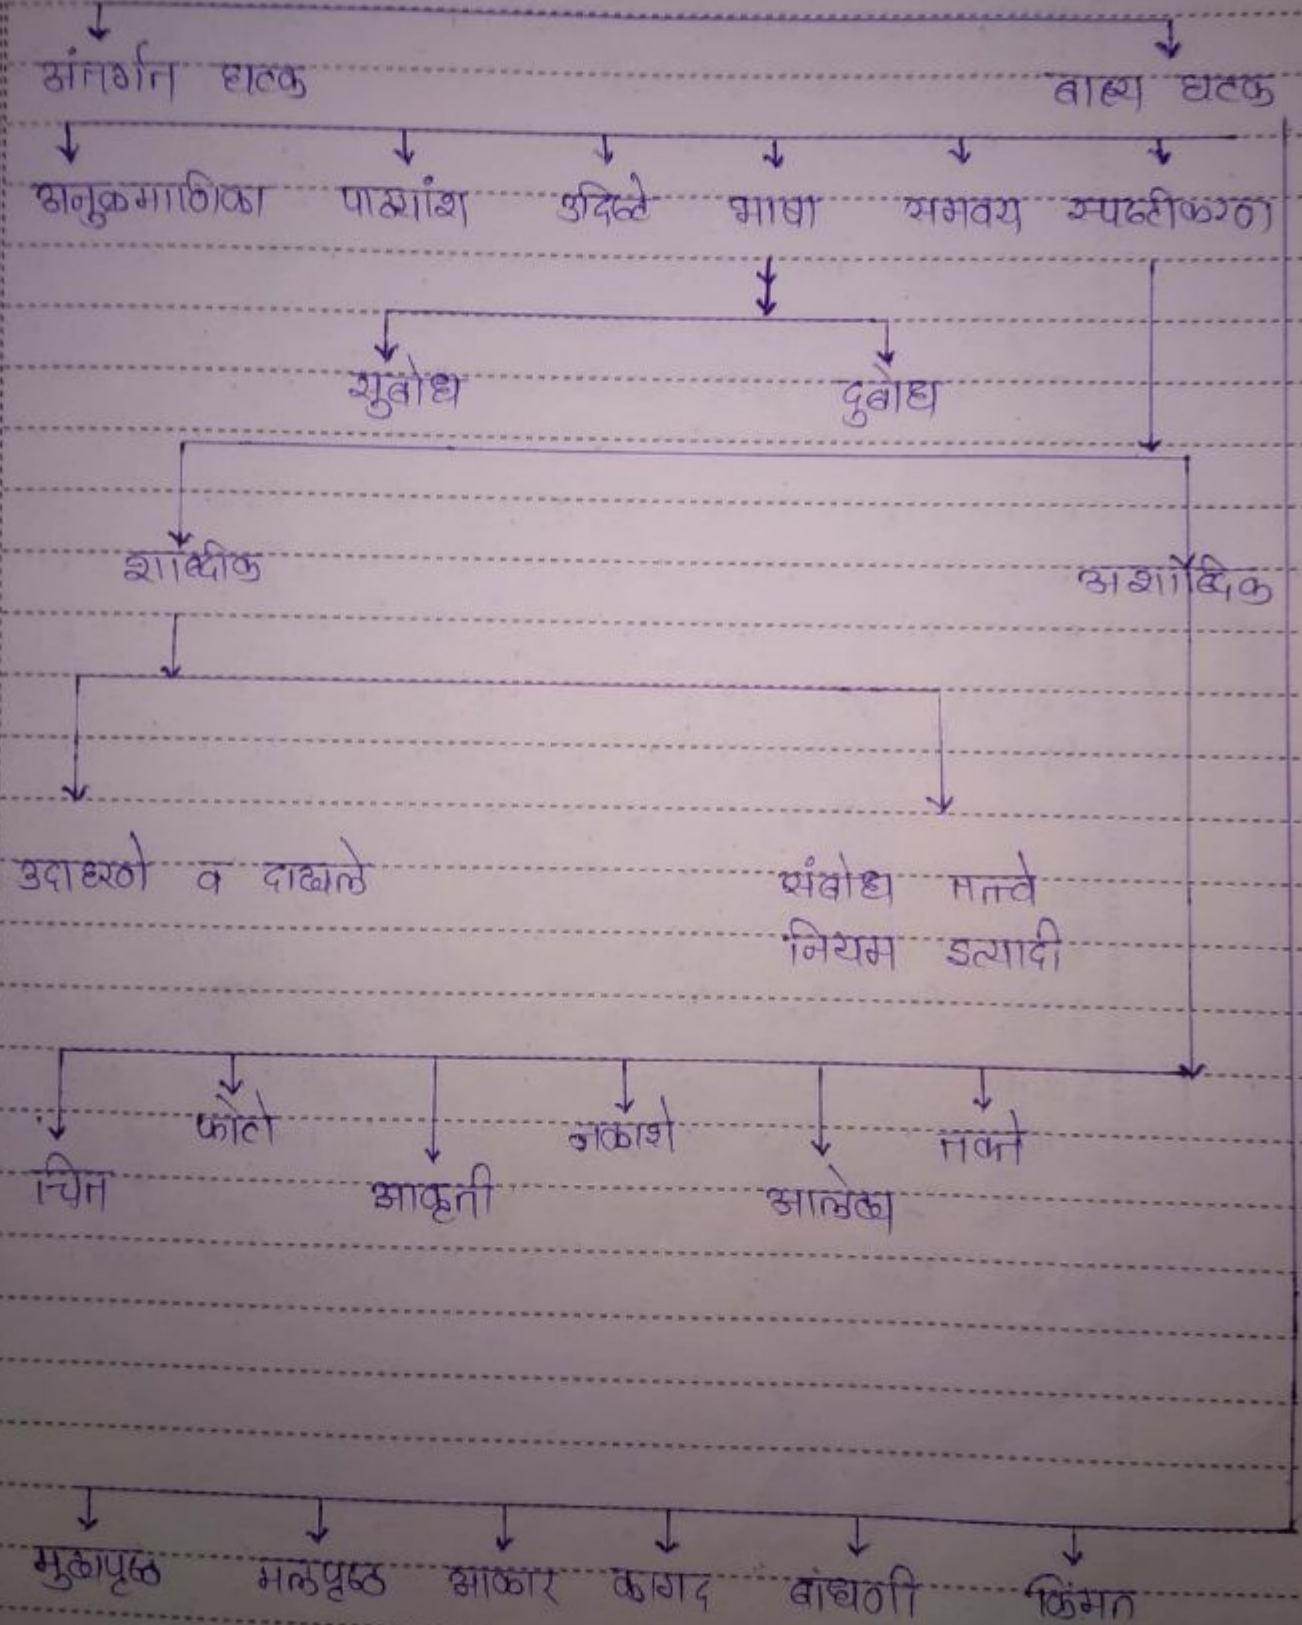 अंतर्गत घटक बाह्य घटक
अनुक्रमाणिका पाठ्यांश उदिष्टे भाषा समवय स्पष्टीकरण
सुबोध दुबोध
शाब्दीक अशाब्दिक
उदाहरणे व दाखले संबोध तत्त्वे
नियम इत्यादी
फोटो नकाशे तक्ते
चित्र आकृती आलेख
मुखपृष्ठ मलपृष्ठ आकार कागद बांधणी किंमत